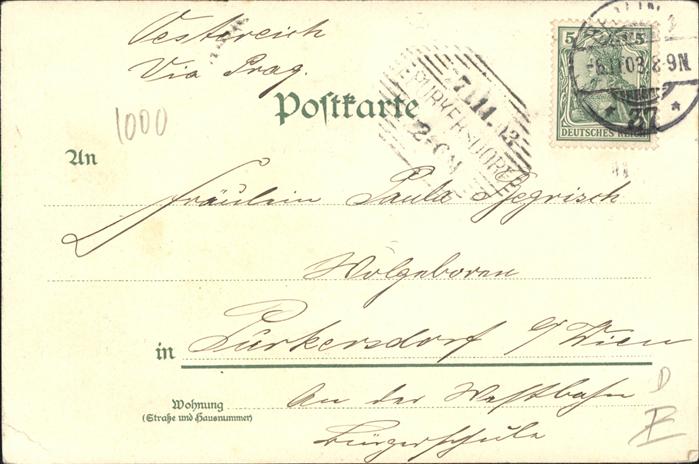 Oesterreich
Via Prag.
Postkarte
1000
5 5
DEUTSCHES REICH
BERLIN
-6.11.03.8-9N
37
* *
7.11.03
PURKERSDORF
An
Fräulein Paula
Wolgeboren
in Purkersdorf b/Wien
Wohnung
(Straße und Hausnummer)
An der Westbahn
Bürgerschule
D
E